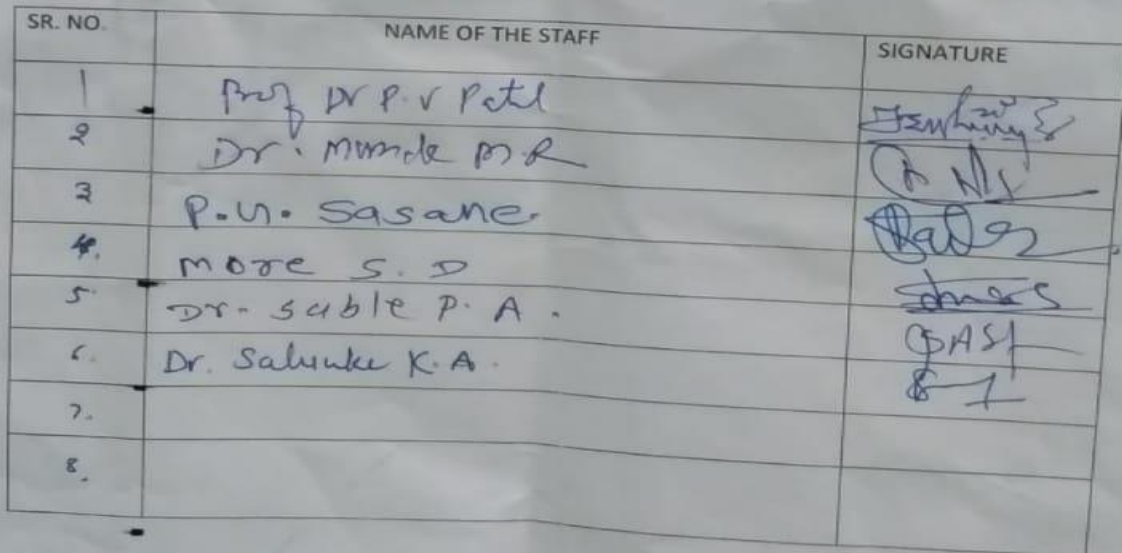 SR. NO. NAME OF THE STAFF SIGNATURE
1 Prof Dr P.V Patil
2 Dr. Munde M.R
3 P.U. Sasane.
4. more S. D
5. Dr. Sable P. A.
6. Dr. Salunke K.A.
7.
8.